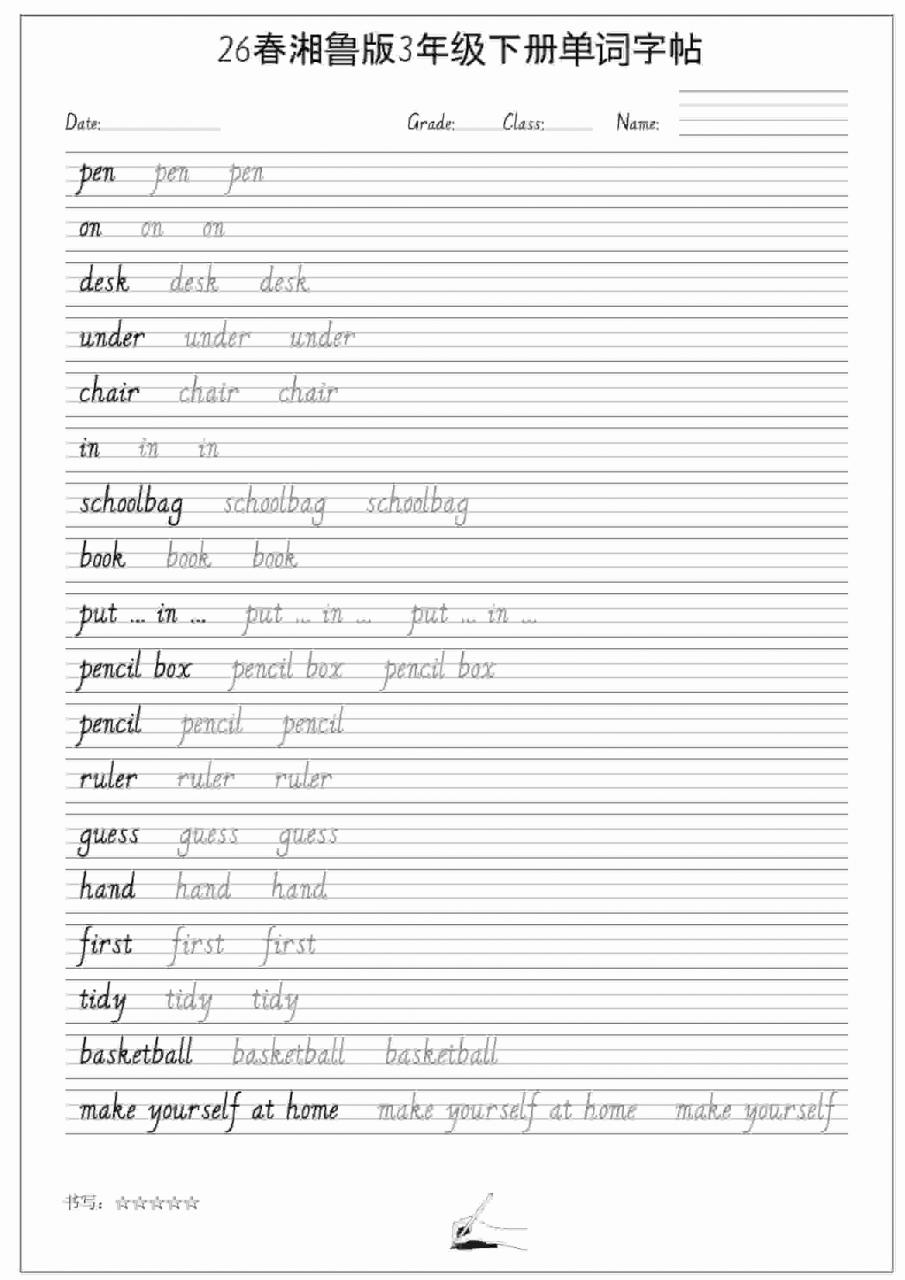 26春湘鲁版3年级下册单词字帖
Date: Grade: Class: Name:
pen pen pen
on on on
desk desk desk
under under under
chair chair chair
in in in
schoolbag schoolbag schoolbag
book book book
put ... in ... put ... in ... put ... in ...
pencil box pencil box pencil box
pencil pencil pencil
ruler ruler ruler
guess guess guess
hand hand hand
first first first
tidy tidy tidy
basketball basketball basketball
make yourself at home make yourself at home make yourself
书写：☆☆☆☆☆